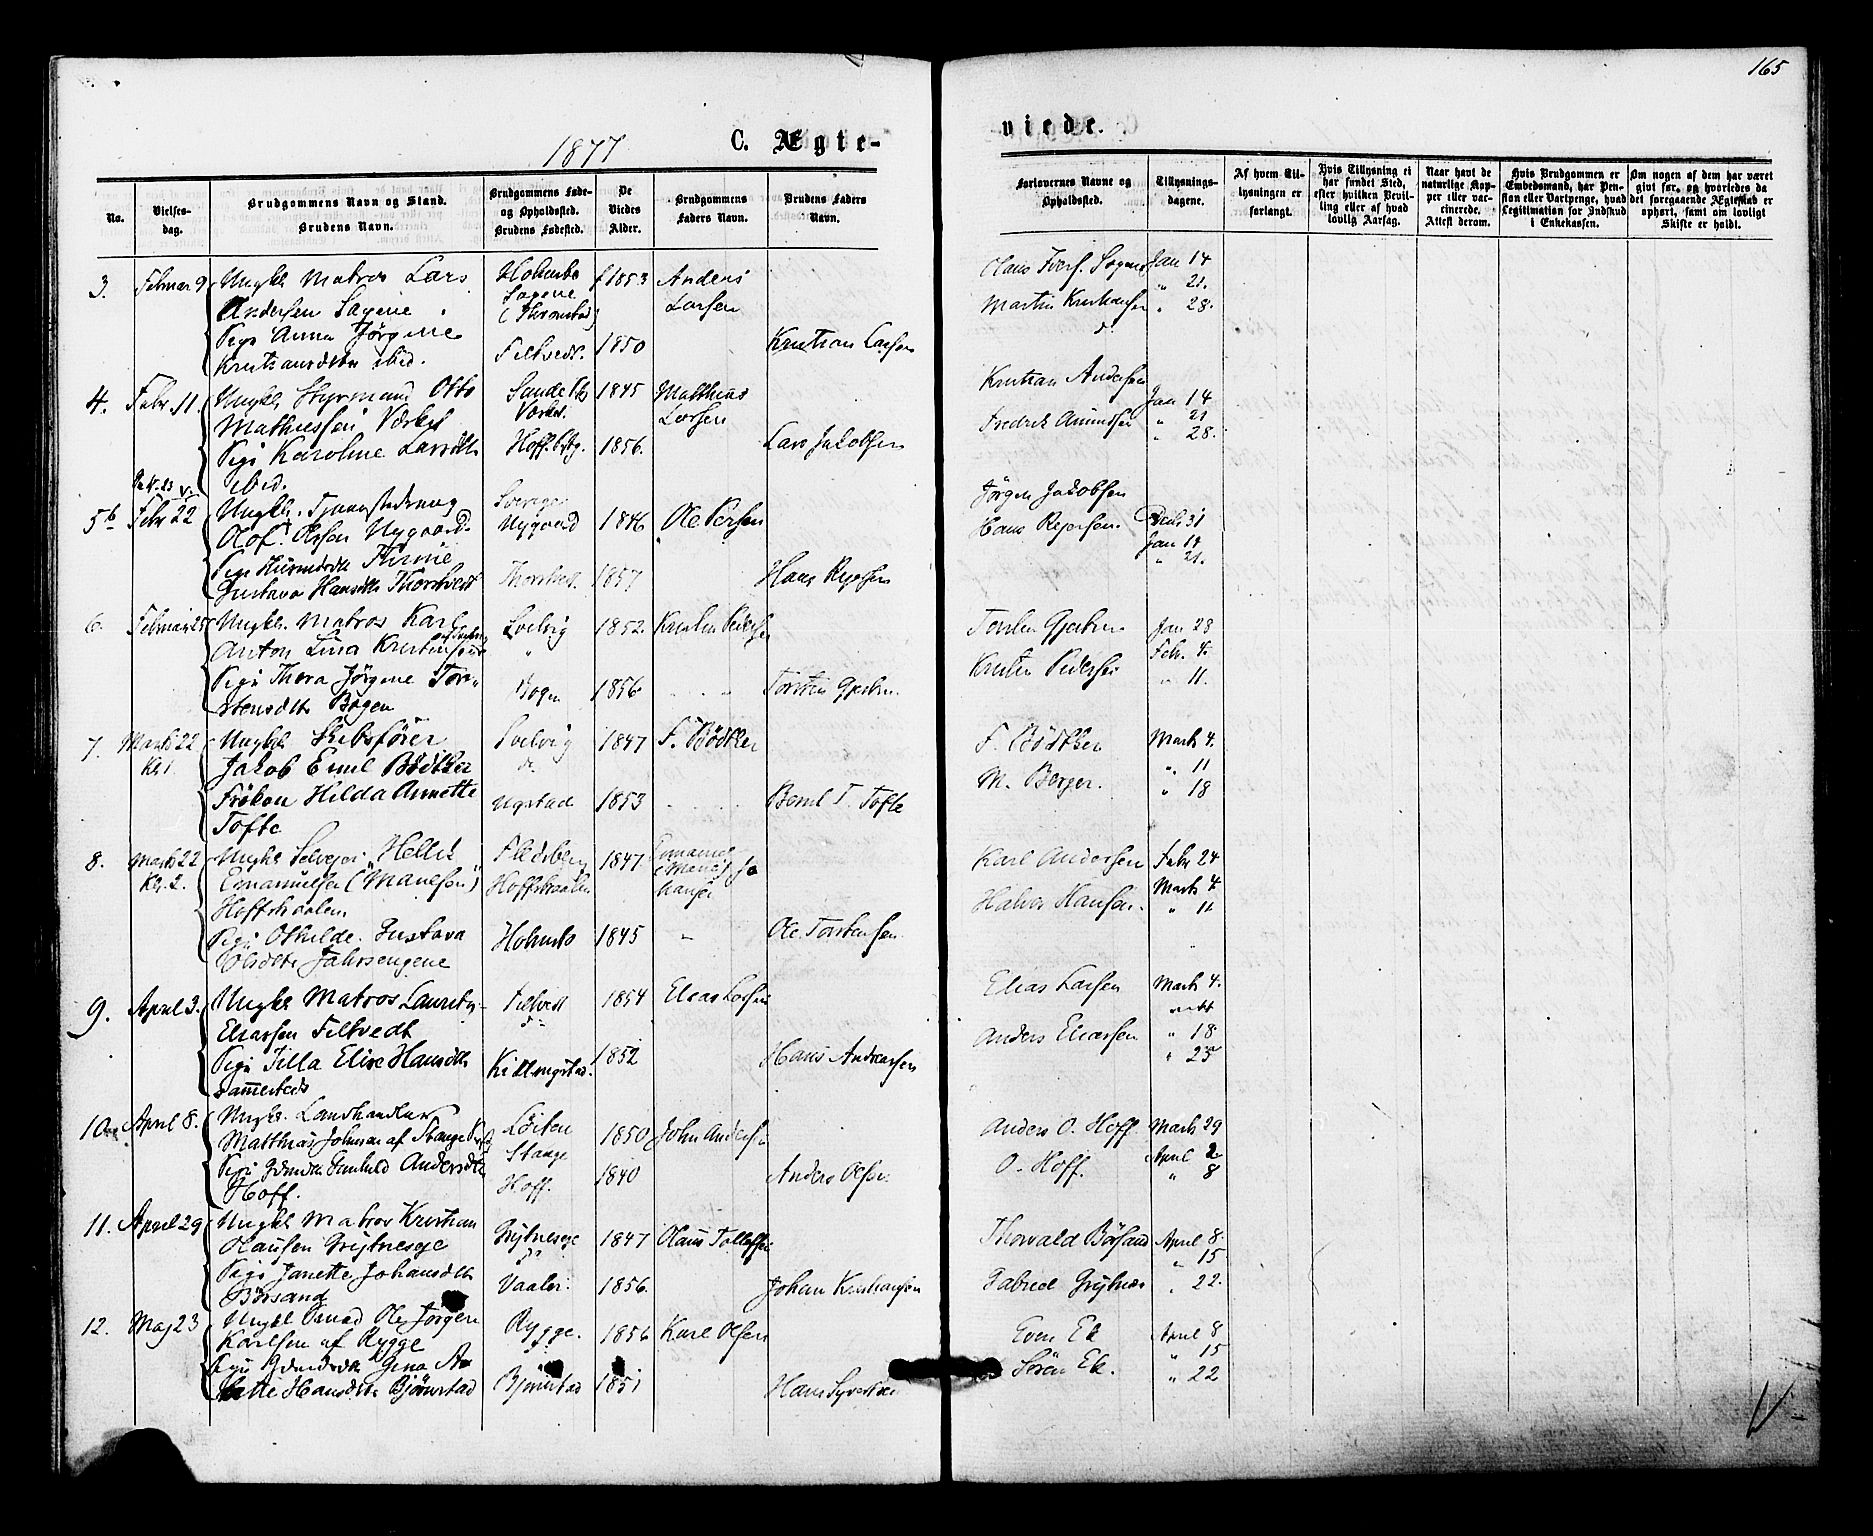 165
1877 C. Ægte-
viede.
No.
Vielses-
dag.
Brudgommens Navn og Stand.
Brudens Navn.
Brudgommens Føde-
og Opholdssted.
Brudens Fødested.
De
Viedes
Alder.
Brudgommens
Faders Navn.
Brudens Faders
Navn.
Forlovernes Navne og
Opholdssted.
Tillysnings-
dagene.
Af hvem Til-
lysningen er
forlangt.
Hvis Tillysning ei
har fundet Sted,
efter hvilken Bevil-
ling eller af hvad
lovlig Aarsag.
Naar havt de
naturlige Kop-
per eller vac-
cinerede.
Attest derom.
Hvis Brudgommen er
Embedsmand, har Pen-
sion eller Vartpenge, hvad
Legitimation for Indskud
i Enkekassen.
Om nogen af dem har været
gift før, og hvorledes da
det foregaaende Ægteskab er
ophørt, samt om lovligt
Skifte er holdt.
3. Februar 9 Ungkl Matros Lars
Andersen Sagene
Pige Anna Jørgine
ibid.
Sagene
Filtvedt.
1853
1850
Anders
Larsen
Kristian Larsen
Jan 14
" 21.
" 28.
4. Febr. 11. Ungkl Styrmand Otto
Mathiesen Værket
Pige Karoline Larsdtr
ibid.
Værket.
1845
1856.
Matthias
Larsen
Lars Jakobsen
Kristian Andersen
Fredrik Amundsen
Jan 14
" 21
" 28.
5 Febr 22 Ungkl.
Olof Olssen Nygaard.
Gustava Hansdtr Thorstvedt
Sverige
Nygaard
1846
1857
Ole Persen
Hans Rejersen
Jørgen Jakobsen
Hans Rejersen.
Decbr 31
Jan 14
" 21.
6. Februar 25 Ungkl. Matros Karl
Anton
Pige Thora Jørgine Tor-
stensdtr Bøgen
Svelvig
"
Bøgen
1852.
1856
Kristen Pedersen
Kristen Pedersen
Jan 28
Febr. 4.
" 11.
7. Marts 22
Kl. 1.
Ungkl Skibsfører
Jakob Emil Bødtker
Frøken Hilda Annette
Tofte
Svelvig
do
1847
1853
F. Bødtker
Bernt T. Tofte
F. Bødtker
M. Berger.
Marts 4.
" 11
" 18
8. Marts 22
Kl. 2.
Ungkl Selveier "Hellik
Emanuelsen (Manesen)"
Hoffskaalen
Pige Othilde Gustava
Olsdtr
Flesberg
Hoffskaalen
1847.
1845
Ole Torstensen
Karl Andersen
Halvor Hansen.
Febr 24
Marts 4
" 11
9. April 3. Ungkl Matros Lauritz
Eliassen Filtvedt
Pige Jilla Elise Hansdtr
sammesteds
Filtvedt
do
1854
1852
Elias Larsen
Hans Andreassen
Elias Larsen
Anders Eliassen
Marts 4.
" 18
" 25
10 April 8. Ungkl. Landhandler
Matthias Johnsen af Stange
Gunhild Andersdtr
Hoff.
Løiten
Stange
Hoff.
1850
1840
John Andersen
Anders Olsen
Anders O. Hoff.
O. Hoff.
Marts 29
April 2
" 8
11. April 29 Ungkl Matros Kristian
Olausen Grytnesøe
Pige Janette Johansdtr
Børsand
Grytnesøe
do
Vaaler.
1847
1856.
Olaus Tollefsen
Johan Kristiansen
Thorvald Børsand
Gabriel Grytnes
April 8.
" 15
" 22.
12. Maj 23 Ungkl Ole Jørgen
Karlsen af Rygge
Gina
Hansdtr Bjørnstad
Rygge.
Bjørnstad
1856
1851
Karl Olsen
Hans Syvertsen
Even Ek
Søren Ek.
April 8
" 15
" 22